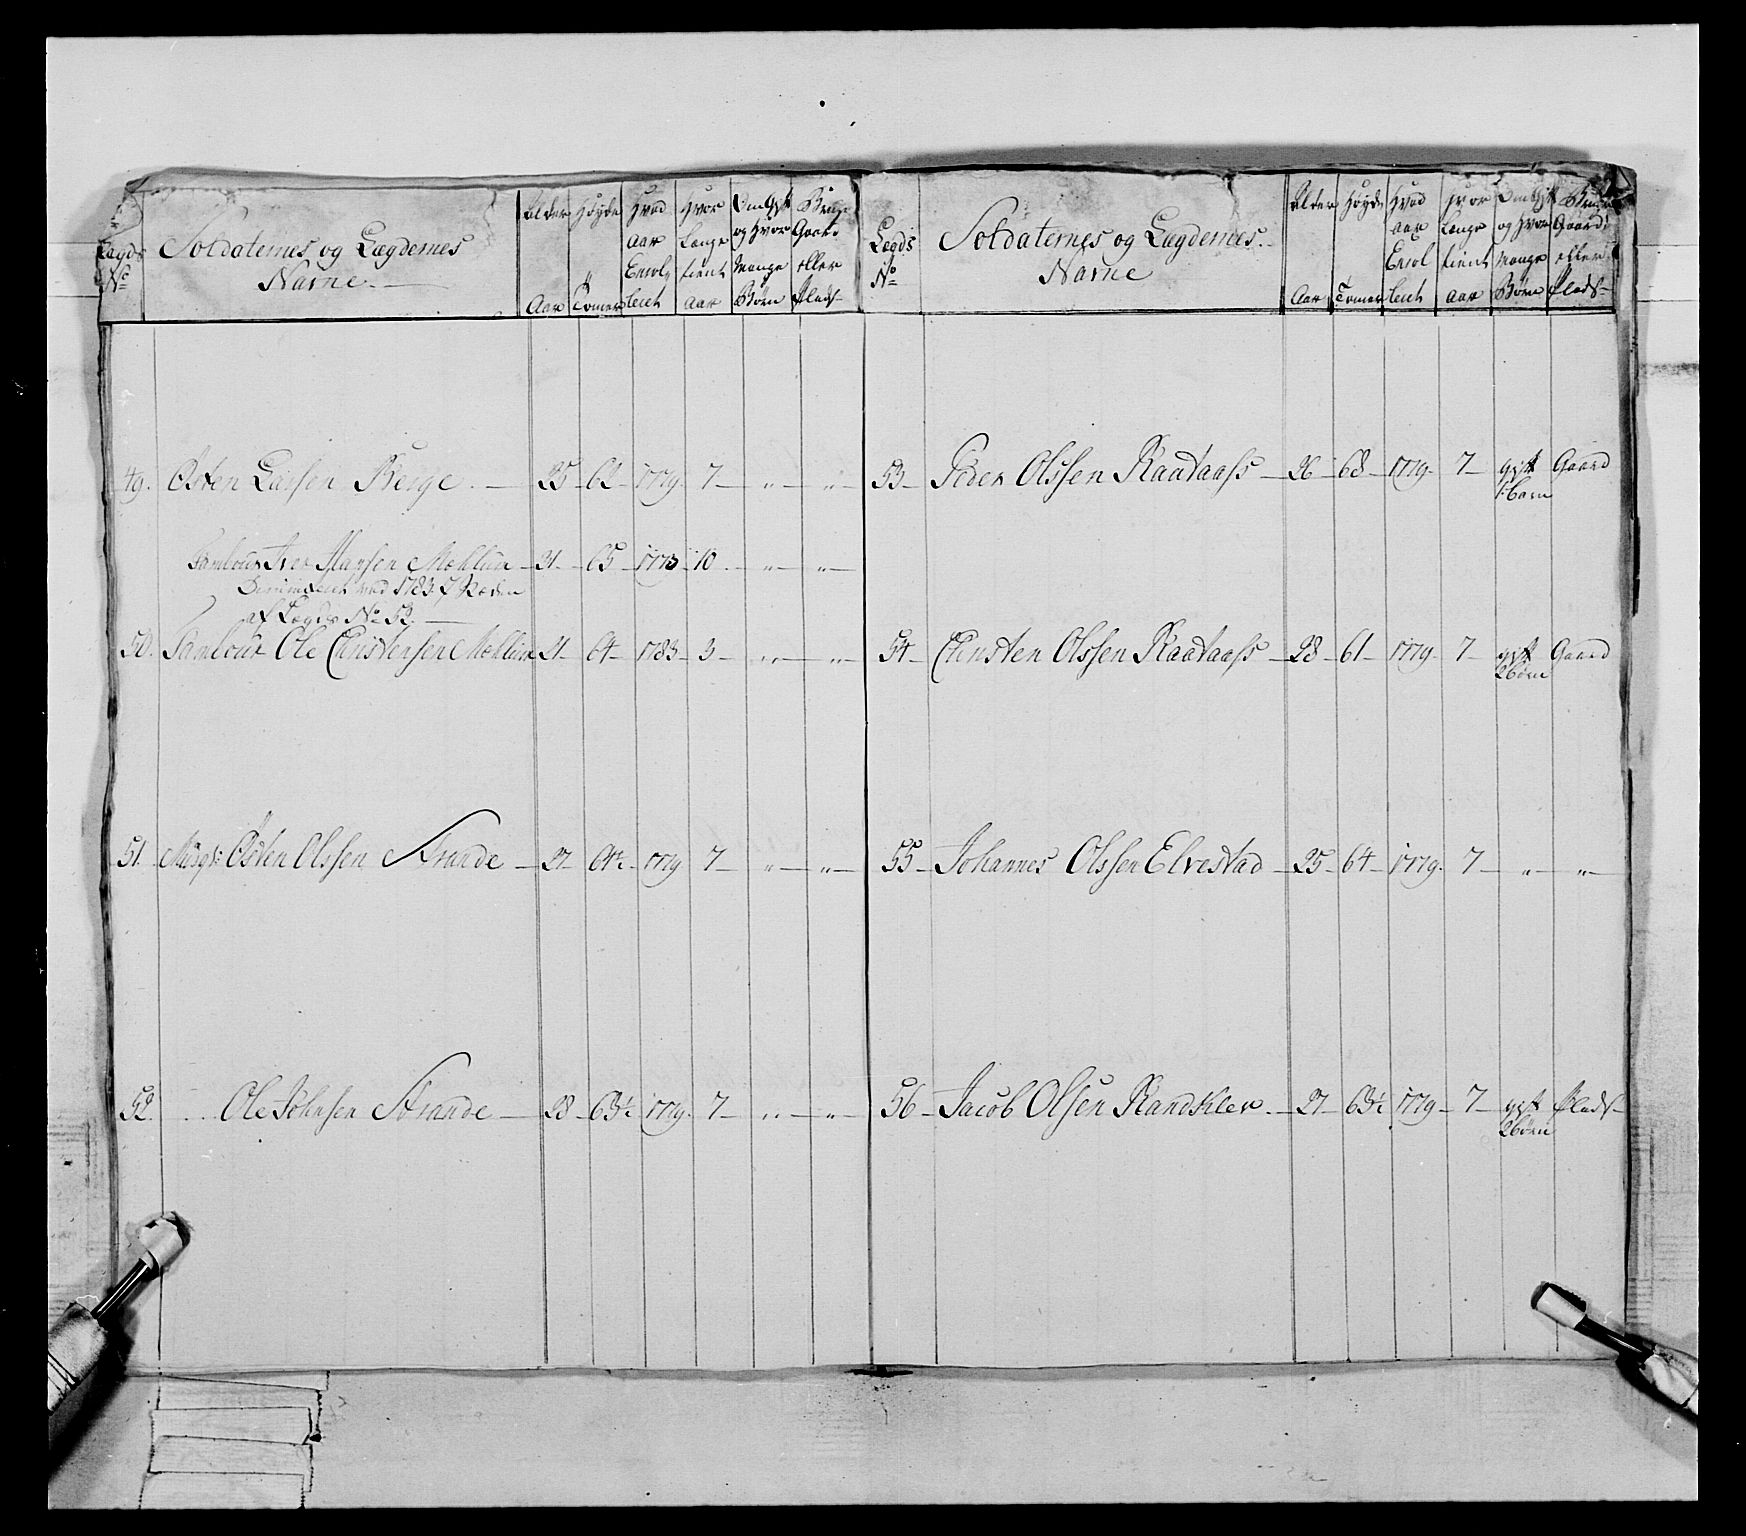 Lægds No Soldaternes og Lægdernes Navne. Alder Aar Høyde Tomer Hvad Aar Enrolleret Hvor Længe tient Aar Om Gift og Hvor Mange Børn Bruger Gaard eller Plads
49. Østen Larsen Berge. 25 62 1779. 7 " "
Tambour Iver Hansen Mæhlum 31 65 1773 10. " "
ved 1783
af Lægds No 52.
50. Tambour Ole Christensen Mæhlum 21 64 1783 3 " "
51. Musqt: Østen Olssen Strande 27 64½ 1779 7 " "
52. Ole Johnsen Strande 28 63½ 1779. 7 " "
Lægds No Soldaternes og Lægdernes Navne Alder Aar Høyde Tomer Hvad Aar Enrolleret Hvor Længe tient Aar Om Gift og Hvor Mange Børn Gaard eller Plads
53 Peder Olssen Raataass 26 68 1779. 7 gift Gaard
1 barn
54 Christen Olssen Raataass 28 61 1779. 7 gift Gaard
2 børn
55 Johannes Olssen Elvestad 25 64 1779. 7 " "
56 Jacob Olsen Randklev. 27 63½ 1779 7 gift Plads
2 børn